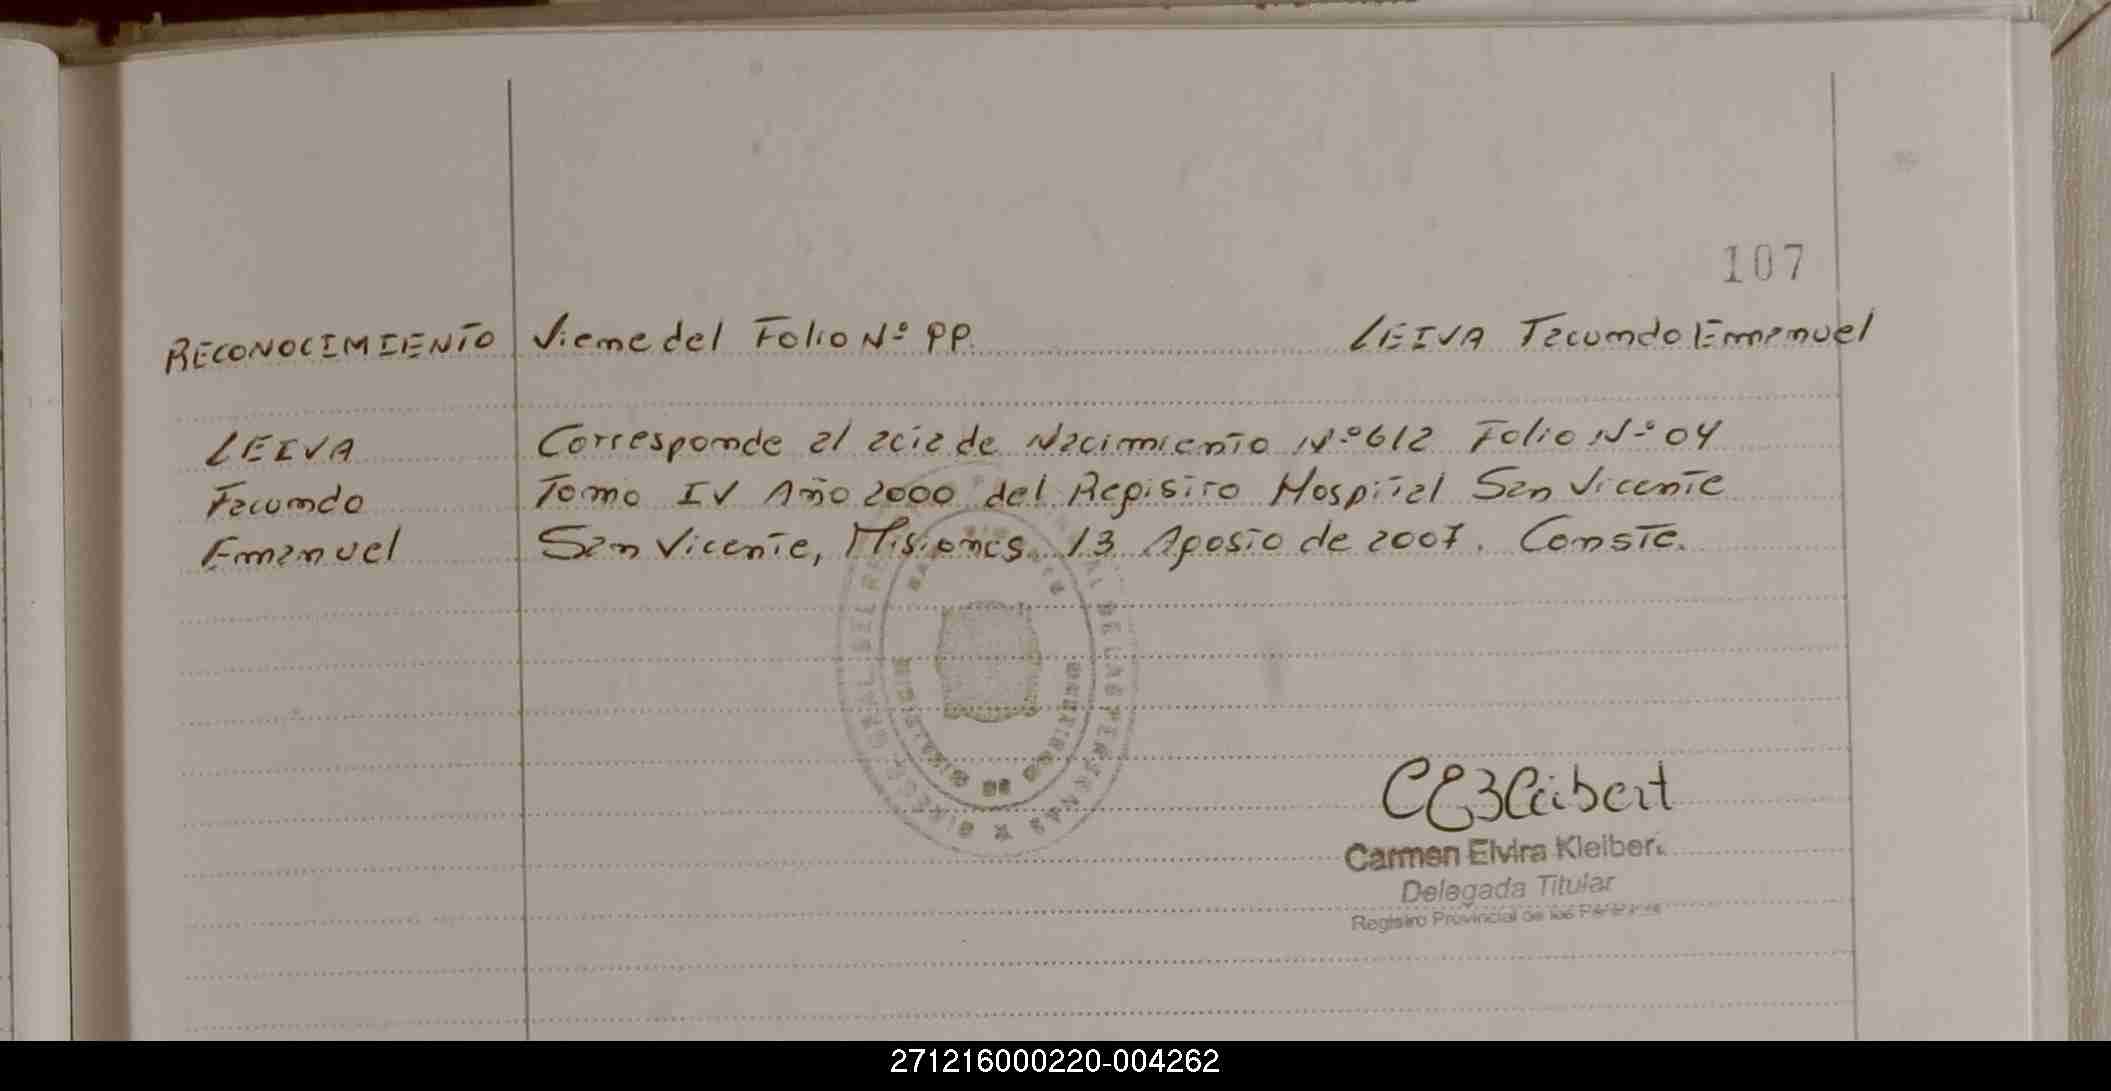 107
RECONOCIMIENTO Viene del Folio Nº 99. LEIVA Facundo Emanuel
LEIVA Corresponde al acta de Nacimiento Nº 612 Folio Nº 04
Facundo Tomo IV Año 2000 del Registro Hospital San Vicente
Emanuel San Vicente, Misiones 13 Agosto de 2007. Conste.
CEKleibert
Carmen Elvira Kleiber
Delegada Titular
Registro Provincial de las Personas
271216000220-004262